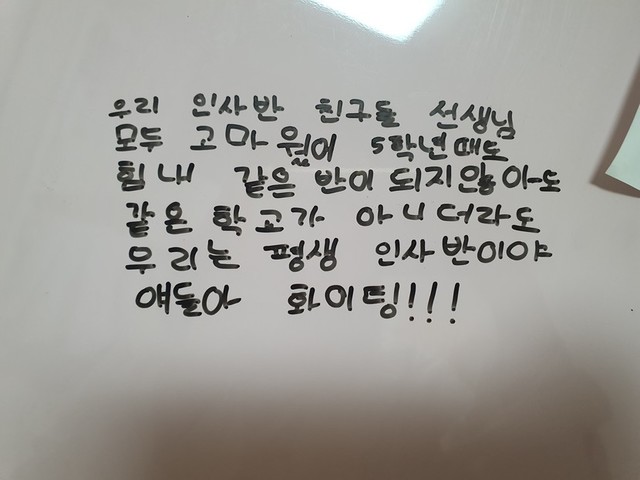 우리 인사반 친구들 선생님
모두 고마웠어 5학년때도
힘내 같은 반이 되지않아도
같은 학고가 아니더라도
우리는 평생 인사반이야
얘들아 화이팅!!!!